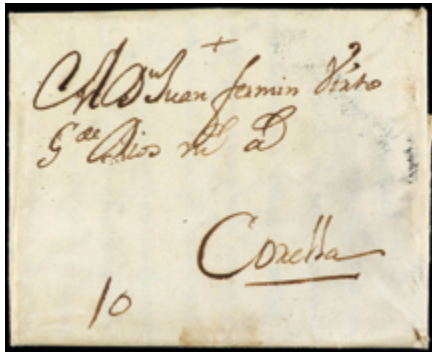 +
A Dn Juan fermin
Gde Dios ms as
Corella
10